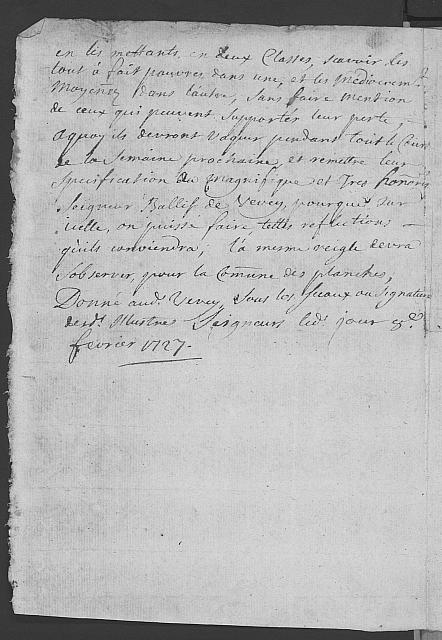 en les mettants, en deux Classes, scavoir les
tout à fait pauvres, dans une, et les Mediocremt
Moyenez dans lautre, sans faire mention
de ceux qui peuvent supporter leur perte,
aquoy ils devront vaquer pendant tout le Cours
de la Semaine prochaine, et remettre leur
specification au magnifique et Tres honnoré
Seigneur Ballif de Vevey, pourque sur
icelle, on puisse faire telles reflections
quils conviendra; la mesme reigle devra
s'observer, pour la Comune des planches,
Donné aud. Vevey, sous les Sceaux ou Signature
desd. Illustres Seigneurs led. jour
fevrier 1727.